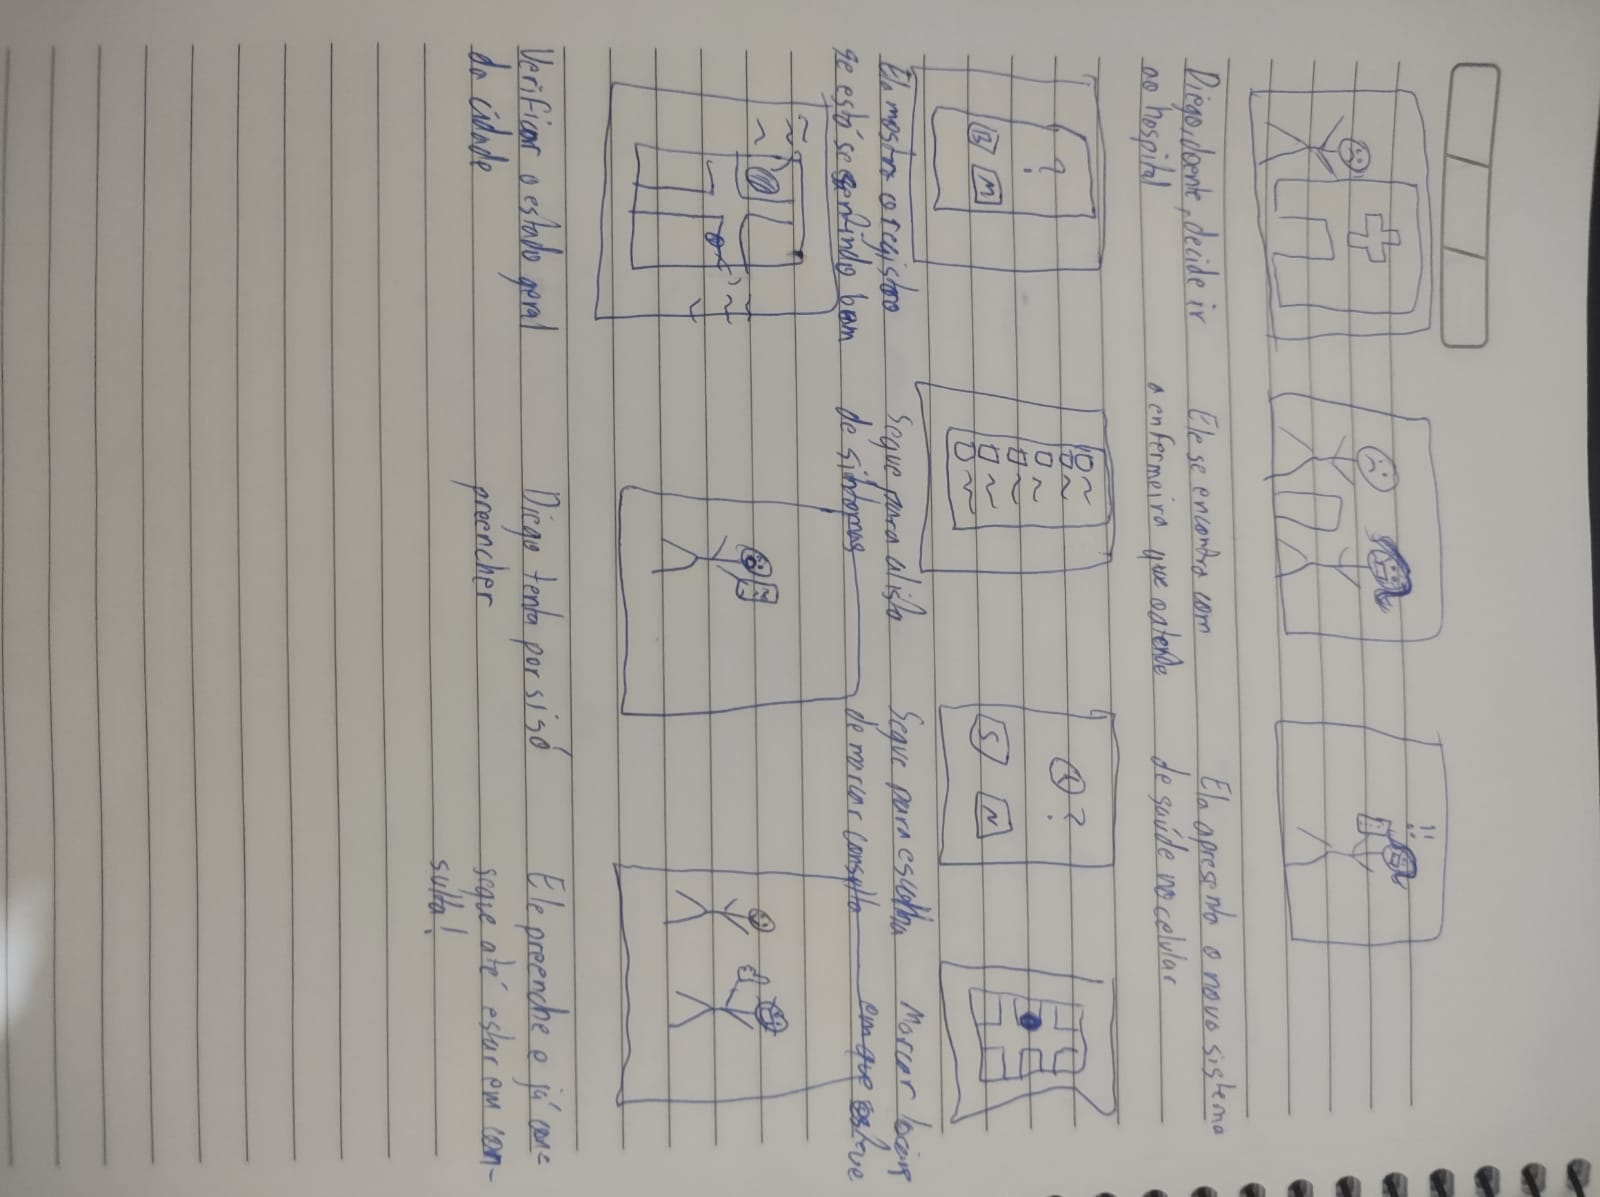 Diego, doente, decide ir
ao hospital
Ele se encontra com
a enfermeira que atende
Ela apresenta o novo sistema
de saúde no celular
?
B M
Ela mostra o registro
se está se sentindo bem
Segue para a lista
de sintomas
?
S N
Segue para escolha
de marcar consulta
Marcar locais
em que esteve
Verificar o estado geral
da cidade
Diego tenta por si só
preencher
Ele preenche e já con-
segue até estar em con-
sulta!